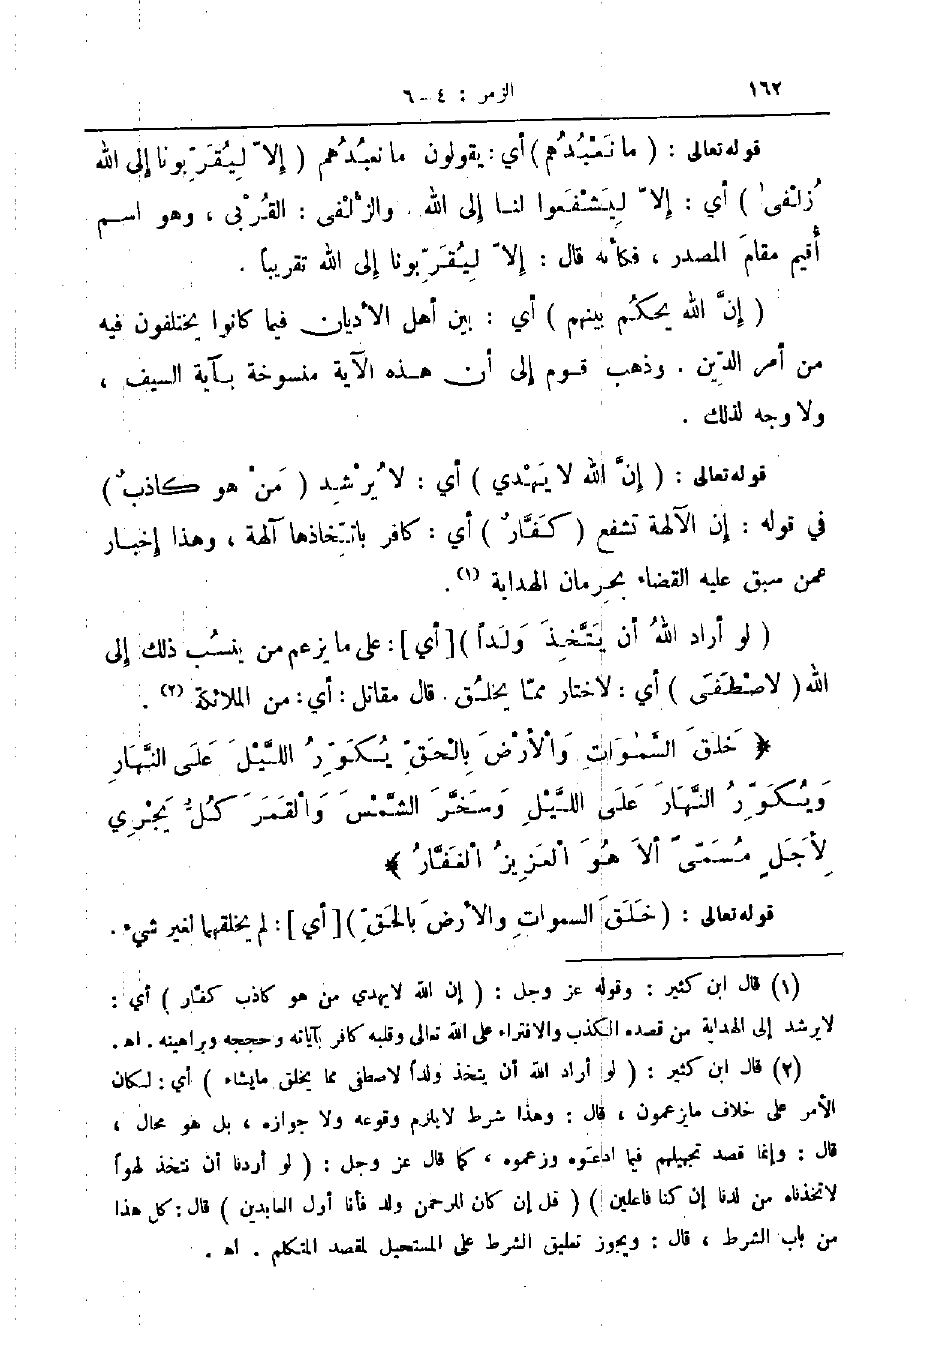 ١٦٢
الزمر : ٤ - ٦
قوله تعالى : ( ما نَعْبُدُهُم ) أي : يقولون ما نعبُدُهم ( إلاّ لِيُقَرِّبونا إلى الله
زُلْفى ) أي : إلاّ لِيَشْفَعوا لنا إلى الله . والزُّلْفى : القُرْبى ، وهو اسم
أُقيم مقامَ المصدر ، فكأنه قال : إلاّ لِيُقَرِّبونا إلى الله تقريباً .
( إنَّ الله يحكُم بينهم ) أي : بين أهل الأديان فيما كانوا يختلفون فيه
من أمر الدِّين . وذهب قوم إلى أن هذه الآية منسوخة بآية السيف ،
ولا وجه لذلك .
قوله تعالى : ( إنَّ الله لا يَهْدي ) أي : لا يُرْشِد ( مَنْ هو كاذبٌ )
في قوله : إن الآلهة تشفع ( كَفَّارٌ ) أي : كافر باتِّخاذها آلهة ، وهذا إخبار
عمن سبق عليه القضاء بحرمان الهداية (١) .
( لو أراد اللهُ أن يَتَّخِذَ وَلَداً ) [ أي ] : على ما يزعم من ينسُب ذلك إلى
الله ( لاصْطَفَى ) أي : لاختار ممّا يخلُق . قال مقاتل : أي : من الملائكة (٢) .
﴿ خَلَقَ السَّمٰوَاتِ وَالْأَرْضَ بِالْحَقِّ يُكَوِّرُ اللَّيْلَ عَلَى النَّهَارِ
وَيُكَوِّرُ النَّهَارَ عَلَى اللَّيْلِ وَسَخَّرَ الشَّمْسَ وَالْقَمَرَ كُلٌّ يَجْرِي
لِأَجَلٍ مُسَمًّى أَلاَ هُوَ الْعَزِيزُ الْغَفَّارُ ﴾
قوله تعالى : ( خَلَقَ السمواتِ والأرضَ بالحَقِّ ) [ أي ] : لم يخلقهما لغير شيء .
(١) قال ابن كثير : وقوله عز وجل : ( إن الله لايهدي من هو كاذب كفار ) أي :
لايرشد إلى الهداية من قصده الكذب والافتراء على الله تعالى وقلبه كافر بآياته وحججه وبراهينه . اه .
(٢) قال ابن كثير : ( لو أراد الله أن يتخذ ولداً لاصطفى مما يخلق مايشاء ) أي : لكان
الأمر على خلاف مايزعمون ، قال : وهذا شرط لايلزم وقوعه ولا جوازه ، بل هو محال ،
قال : وإنما قصد تجهيلهم فيما ادعَوه وزعموه ، كما قال عز وجل : ( لو أردنا أن نتخذ لهواً
لاتخذناه من لدنا إن كنا فاعلين ) ( قل إن كان للرحمن ولد فأنا أول العابدين ) قال : كل هذا
من باب الشرط ، قال : ويجوز تعليق الشرط على المستحيل لمقصد المتكلم . اه .